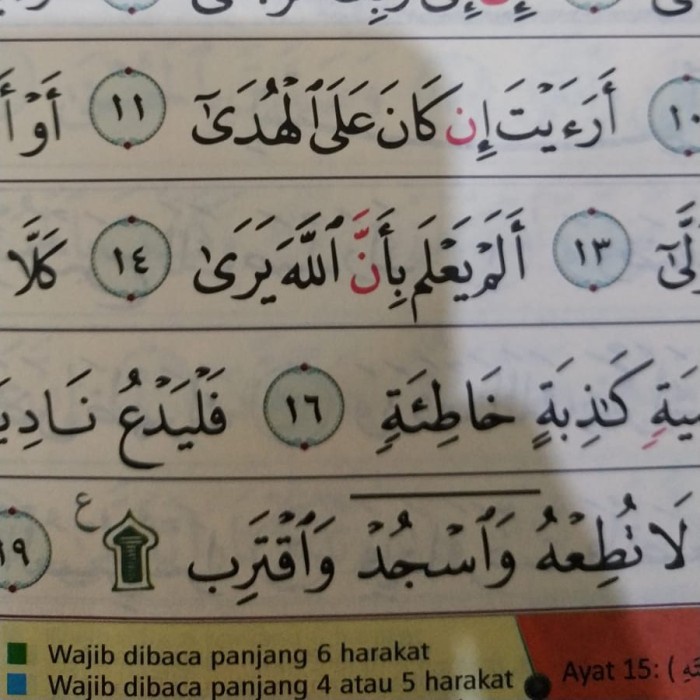 ١٠ أَرَءَيْتَ إِن كَانَ عَلَى ٱلْهُدَىٰٓ ١١ أَوْ
١٣ أَلَمْ يَعْلَم بِأَنَّ ٱللَّهَ يَرَىٰ ١٤ كَلَّا
كَٰذِبَةٍ خَاطِئَةٍ ١٦ فَلْيَدْعُ
لَا تُطِعْهُ وَٱسْجُدْ وَٱقْتَرِب ۩ ع ١٩
Wajib dibaca panjang 6 harakat
Wajib dibaca panjang 4 atau 5 harakat
Ayat 15: (